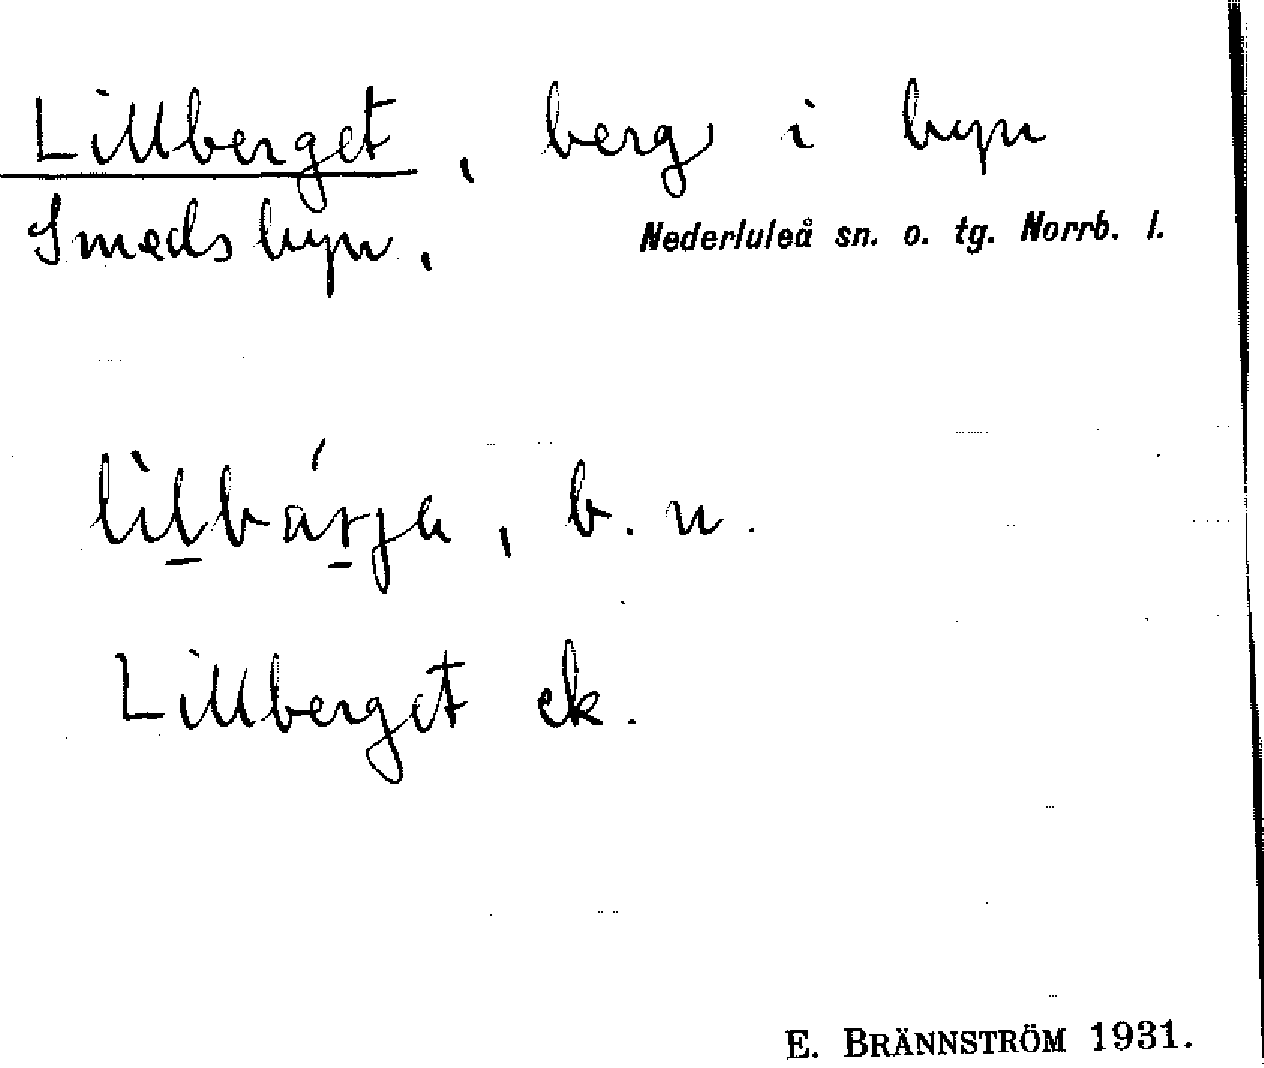 Lillberget, berg i byn
Smedsbyn.
Nederluleå sn. o. tg. Norrb. l.
lìlbárja, b. n.
Lillberget ek.
E. BRÄNNSTRÖM 1931.